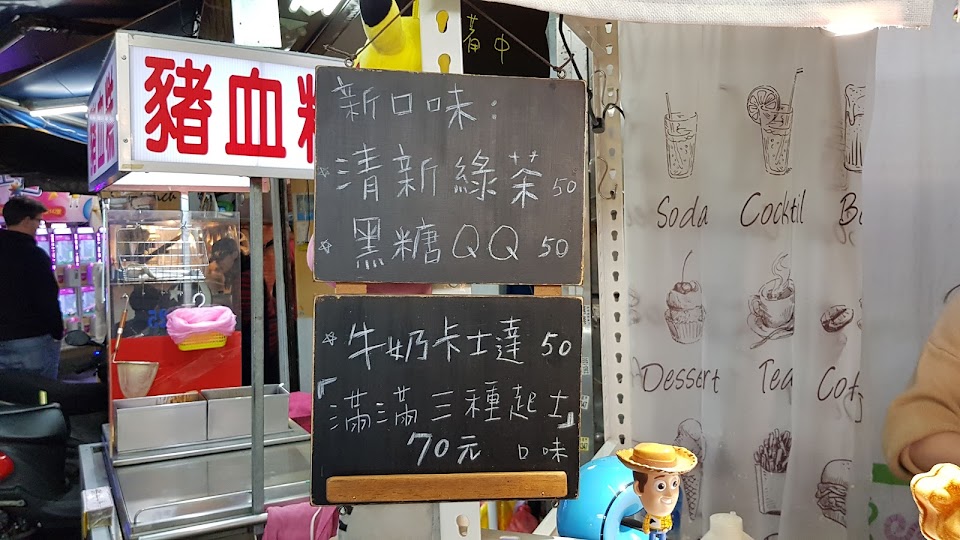 豬血糕
新口味:
☆清新綠茶 50
☆黑糖QQ 50
☆牛奶卡士達 50
「滿滿三種起士」
70元 口味
Soda
Cocktil
Dessert
Tea